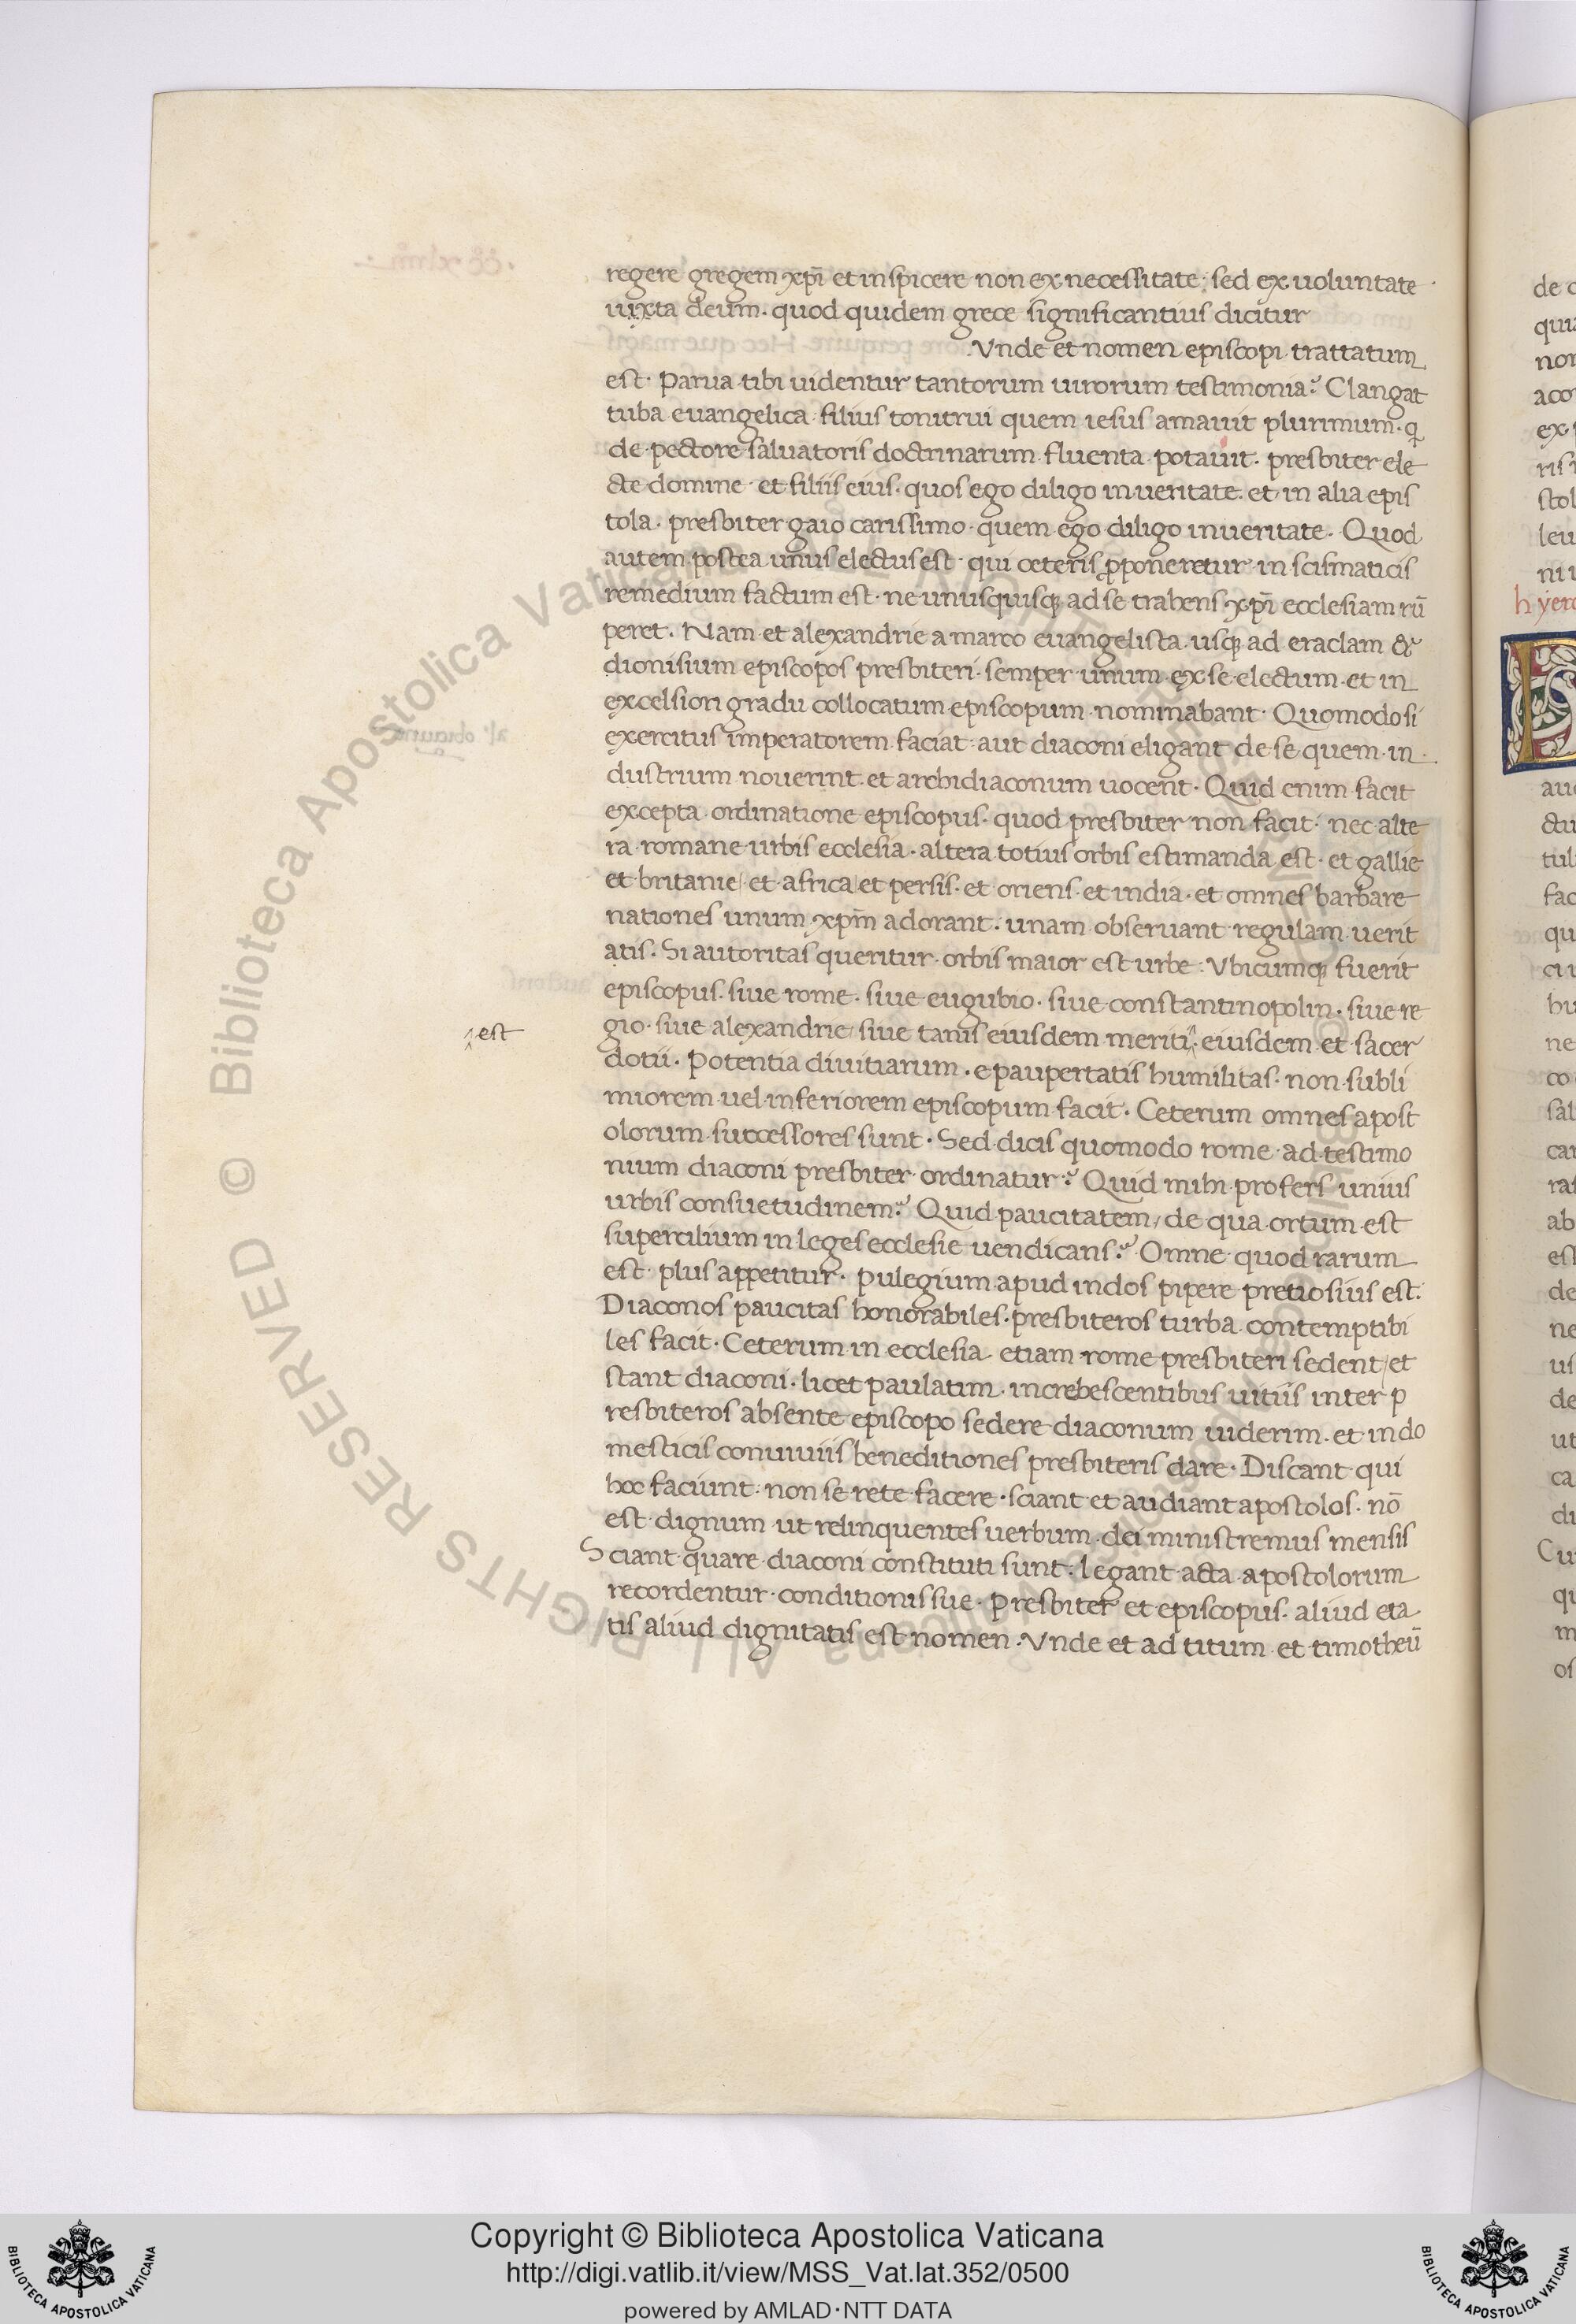 regere gregem xp̄i et inspicere non ex necessitate: sed ex uoluntate
iuxta deum. quod quidem grece significantius dicitur
Vnde et nomen episcopi trattatum
est. Parua tibi uidentur tantorum uirorum testimonia? Clangat
tuba euangelica filius tonitrui quem iesus amauit plurimum. q
de pectore saluatoris doctrinarum fluenta potauit. presbiter ele
cte domine et filiis eius. quos ego diligo in ueritate. et in alia epis
tola. presbiter gaio carissimo quem ego diligo in ueritate. Quod
autem postea unus electus est qui ceteris p̄poneretur in scismaticis
remedium factum est. ne unusquisq; ad se trahens xp̄i ecclesiam rū
peret. Nam et alexandrie a marco euangelista usq; ad eraclam &
dionisium episcopos presbiteri semper unum ex se electum et in
excelsiori gradu collocatum episcopum nominabant. Quomodo si
exercitus imperatorem faciat aut diaconi eligant de se quem in
dustrium nouerint et archidiaconum uocent. Quid enim facit
excepta ordinatione episcopus. quod presbiter non facit. nec alte
ra romane urbis ecclesia. altera totius orbis estimanda est. et gallie
et britanie/ et africa/ et persis. et oriens. et india. et omnes barbare
nationes unum xp̄m adorant: unam obseruant regulam uerit
atis. Si autoritas queritur orbis maior est urbe: Vbicumq; fuerit
episcopus. siue rome. siue eugubio. siue constantinopolin. siue re
gio. siue alexandrie/ siue tanis eiusdem meriti. eiusdem et sacer
est
dotii. Potentia diuitiarum. e paupertatis humilitas. non subli
miorem uel inferiorem episcopum facit. Ceterum omnes apost
olorum successores sunt. Sed dicis quomodo rome ad testimo
nium diaconi presbiter ordinatur? Quid mihi profers unius
urbis consuetudinem? Quid paucitatem/ de qua ortum est
supercilium in leges ecclesie uendicans? Omne quod rarum
est plus appetitur. Pulegium apud indos pipere pretiosius est.
Diaconos paucitas honorabiles. presbiteros turba contemptibi
les facit. Ceterum in ecclesia etiam rome presbiteri sedent/ et
stant diaconi. licet paulatim increbescentibus uitiis inter p
resbiteros absente episcopo sedere diaconum uiderim. et in do
mesticis conuiuiis beneditiones presbiteris dare. Discant qui
hoc faciunt: non se rete facere. sciant et audiant apostolos. nō
est dignum ut relinquentes uerbum dei ministremus mensis
Sciant quare diaconi constituti sunt: legant acta apostolorum
recordentur conditionis sue. Presbiter et episcopus. aliud eta
tis aliud dignitatis est nomen. Vnde et ad titum et timotheū
Copyright © Biblioteca Apostolica Vaticana
http://digi.vatlib.it/view/MSS_Vat.lat.352/0500
powered by AMLAD·NTT DATA